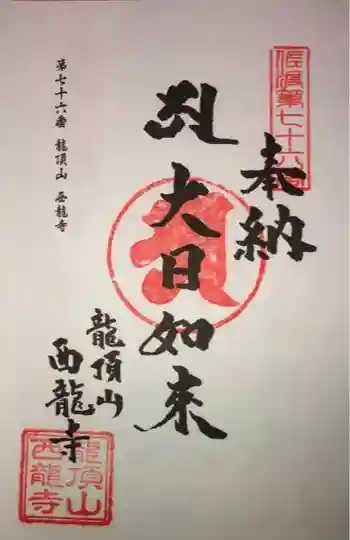 佐渡第七十六番
奉納
大日如来
龍頂山
西龍寺
龍頂山
西龍寺
第七十六番 龍頂山 西龍寺